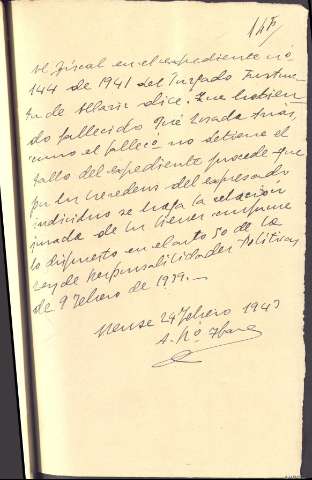 El Fiscal en el expediente nº
144 de 1941 del Juzgado Instruc
de Allariz dice: Que habien
do fallecido José Losada
como el fallecº no detiene el
fallo del expediente procede que
por los herederos del expresado
individuo se haga la relación
jurada de los bienes conforme
lo dispuesto en el artº 50 de la
Ley de Responsabilidades Políticas
de 9 Febrero de 1939.—
Orense 24 Febrero 1943
A.